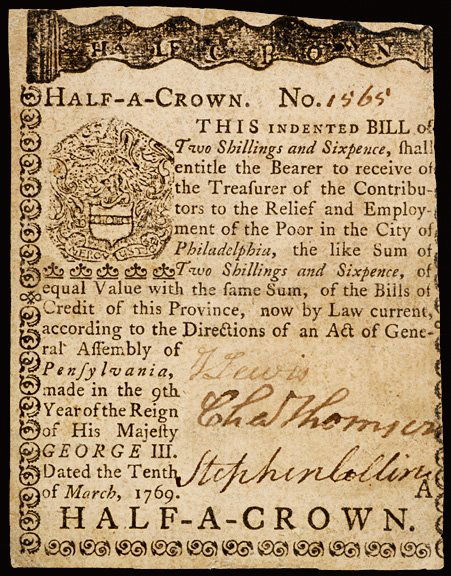 HALF CROWN
HALF-A-CROWN. No. 1565
THIS INDENTED BILL of
Two Shillings and Sixpence, ſhall
entitle the Bearer to receive of
the Treaſurer of the Contribu-
tors to the Relief and Employ-
ment of the Poor in the City of
Philadelphia, the like Sum of
Two Shillings and Sixpence, of
equal Value with the ſame Sum, of the Bills of
Credit of this Province, now by Law current,
according to the Directions of an Act of Gene-
ral Aſſembly of
Penſylvania,
made in the 9th
Year of the Reign
of His Majeſty
GEORGE III.
Dated the Tenth
of March, 1769.
J Lewis
Chas Thomson
Stephen Collins
A
HALF-A-CROWN.